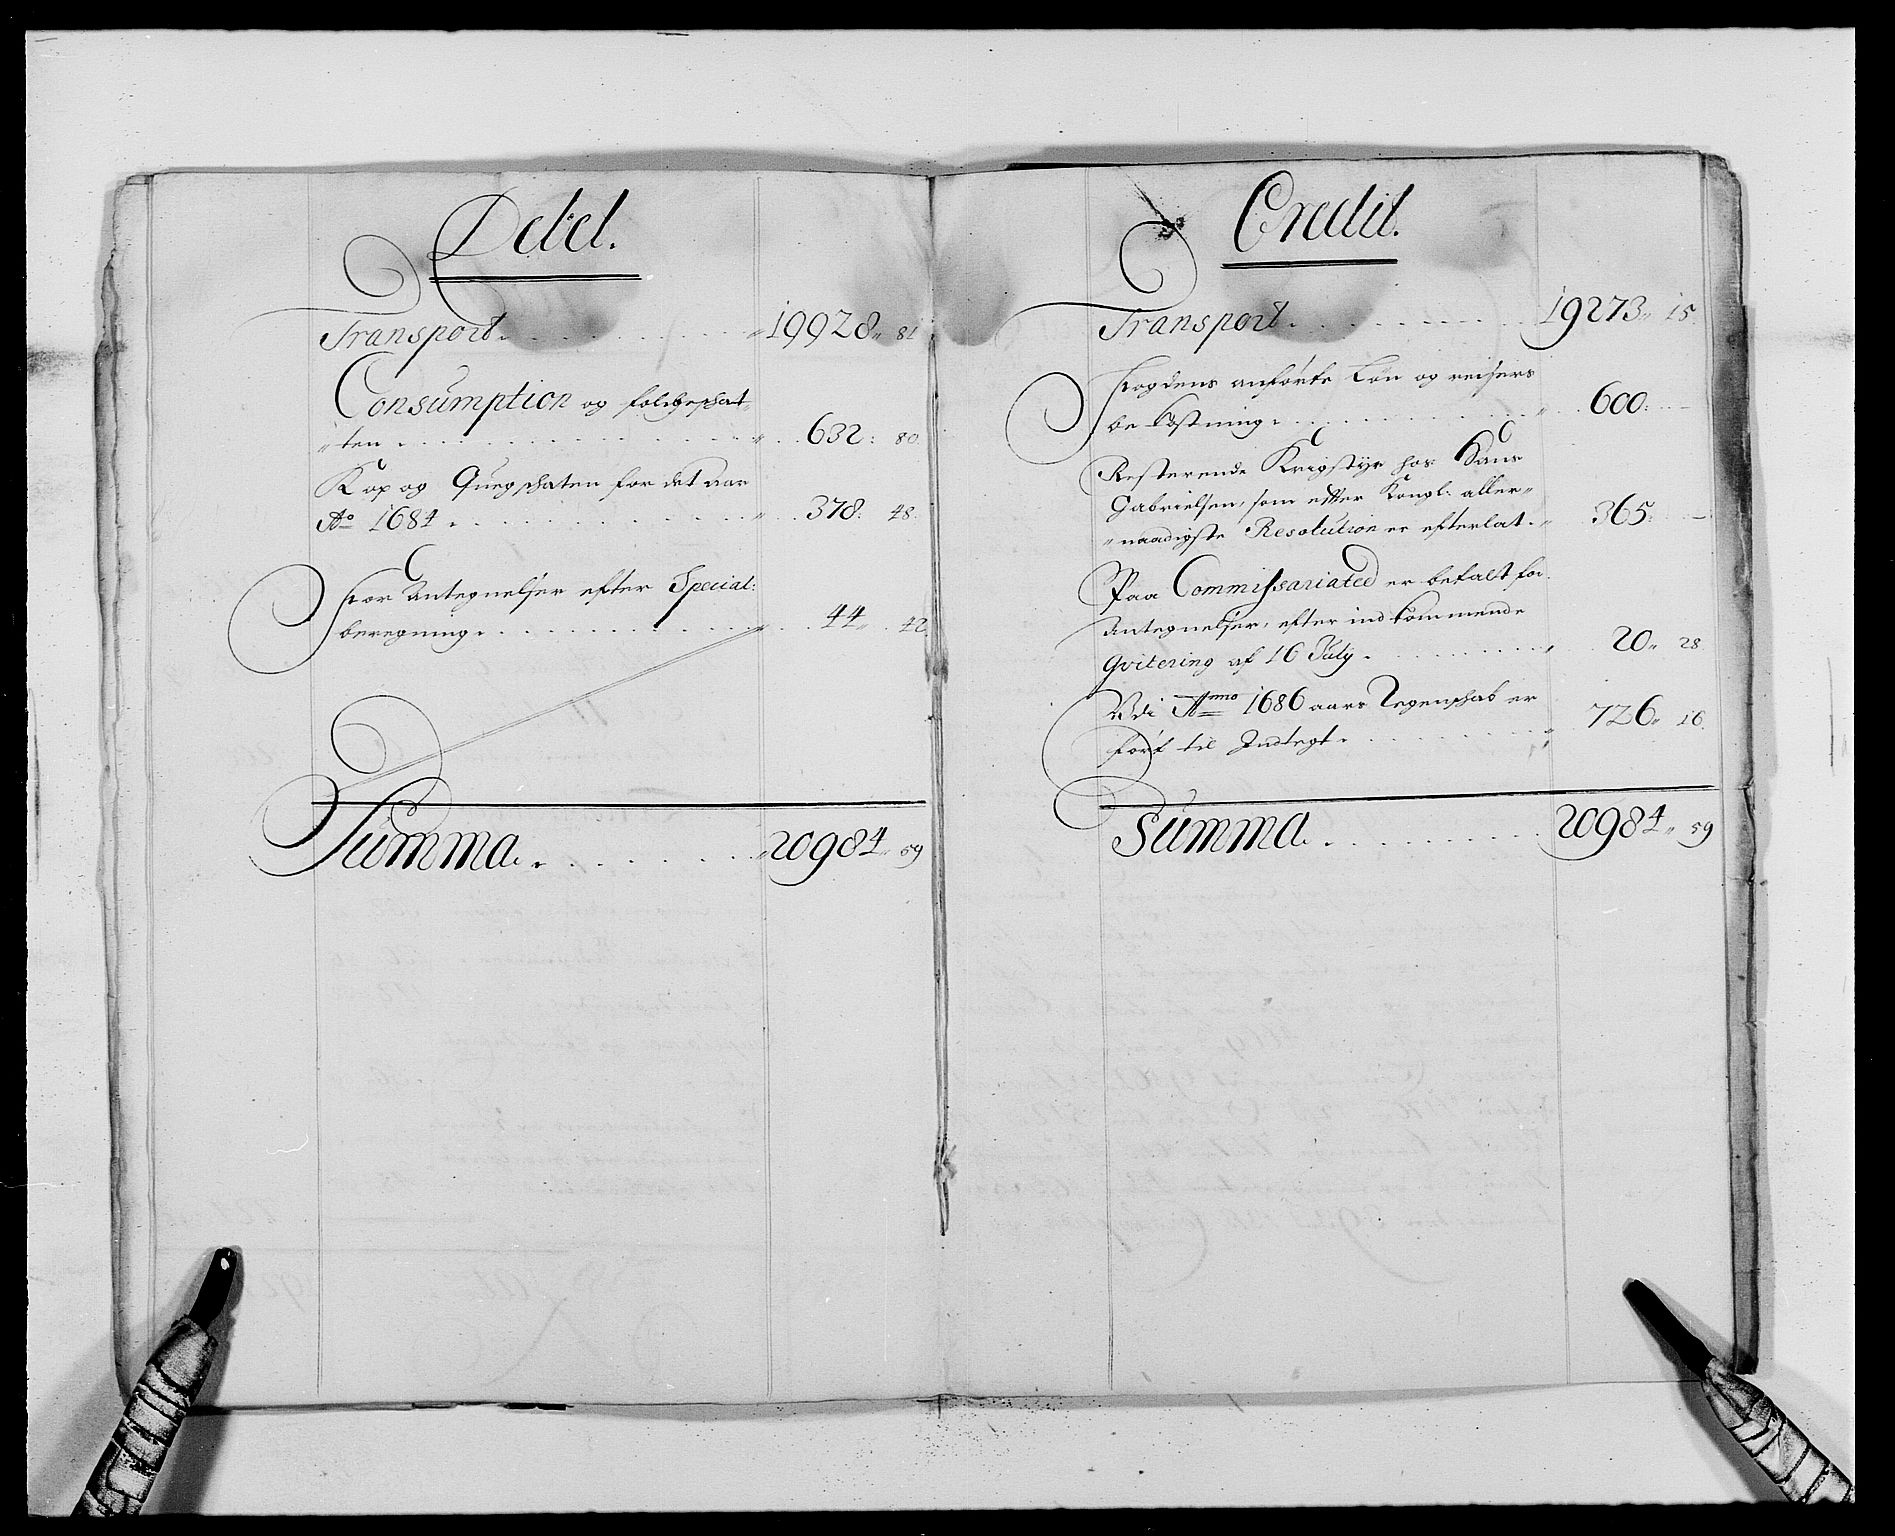 Debet.
Transport. 19928 „ 81
Consumption og folcheschat-
ten 632: 80
Kop og Quegschaten for det aar
Ao 1684 378: 48
For Antegnelser efter Special:
beregning 44 „ 42
Summa. 20984 „ 59
Credit.
Transport. 19273 „ 15
Fogdens anførte Løn og reisers
bekostning 600: —
Resterende Krigstyr hos Hans
Gabrielsen, som efter Kongl: aller-
naadigste Resolution er efterlat. 365: —
Paa Commissariated er betalt for
Antegnelser, efter indkommende
Qvitering af 16 July 20 „ 28
Udi Anno 1686 aars Regenschab er
ført til Indtegt. 726 „ 16
Summa 20984 „ 59